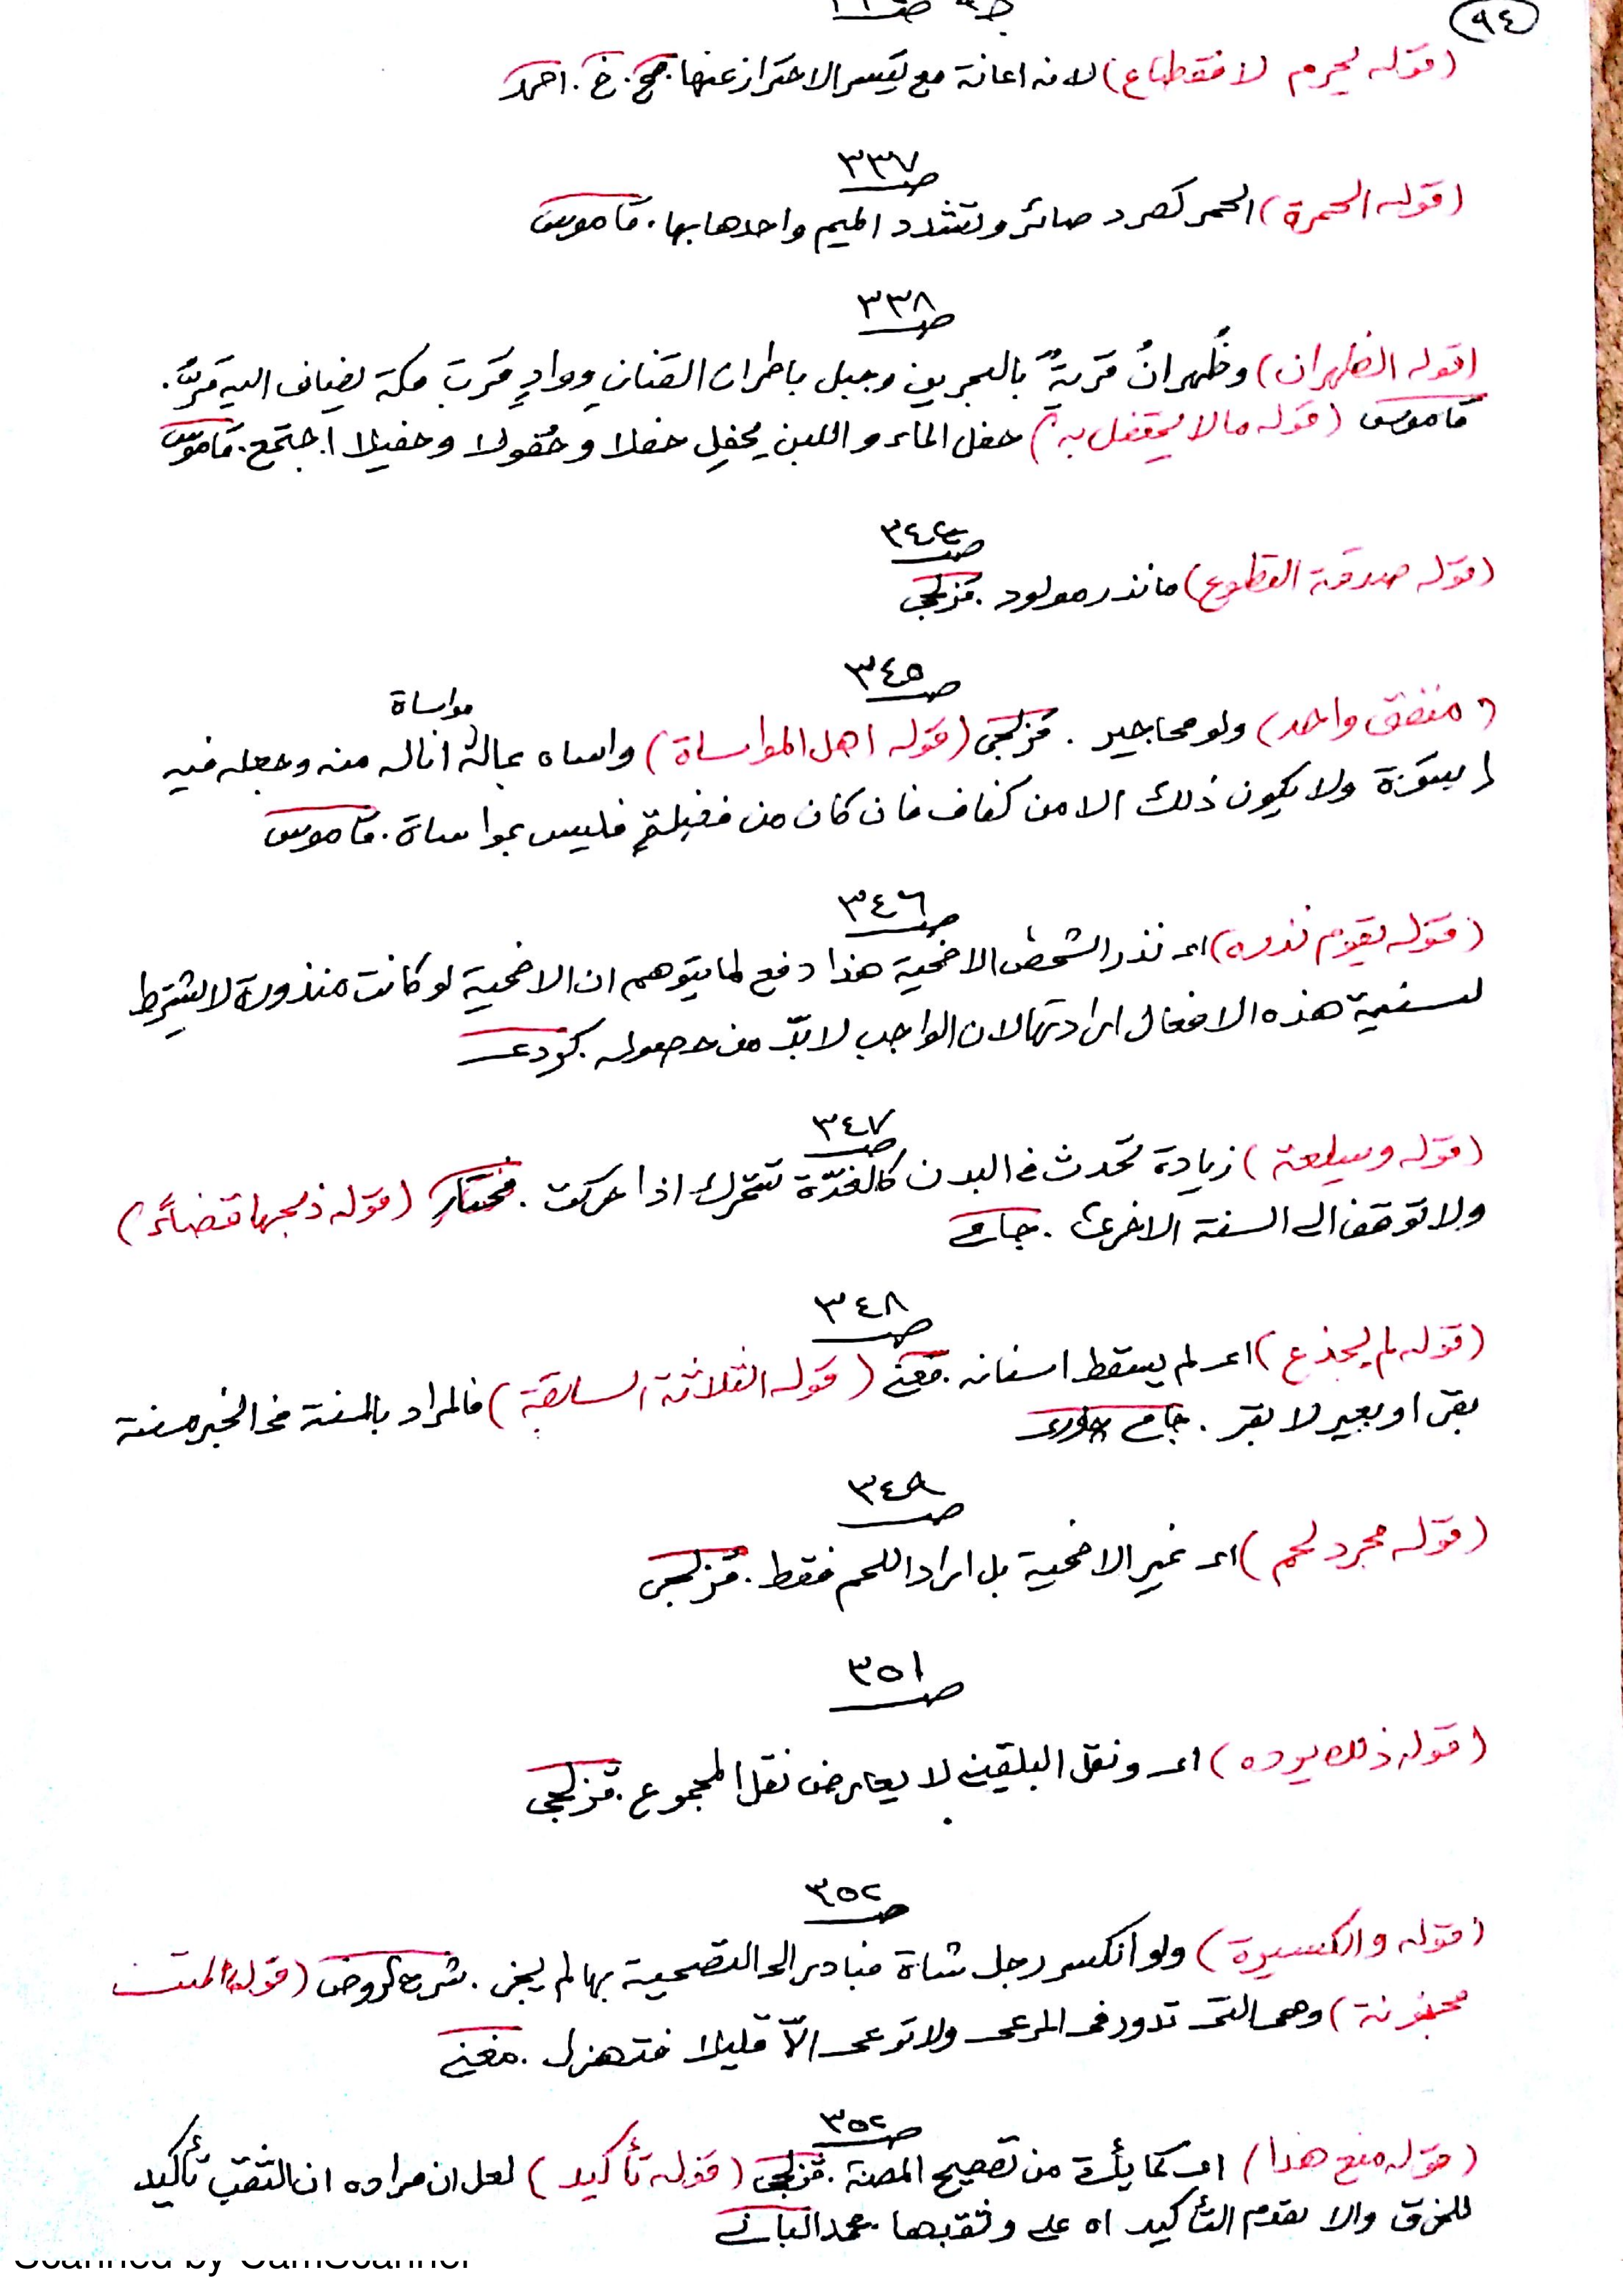 ٩٤
(قوله لحرم لا فقطاع) لانه اعانة مع تيسر الاحتراز عنها. مح. خ. احمد
ص ٣٣٧
(قوله الحمرة) الحمر كصرد صائر وتشدد الميم واحدها بها. قاموس
ص ٣٣٨
(قوله الظهران) وظُهرانُ قريةٌ بالبحرين وجبل باطراف القنان ووادٍ قربَ مكة يضاف اليه مَرُّ.
قاموس (قوله مالا يحتفل به) حفل الماء واللبن يحفِل حفلا وحُفولا وحفيلا اجتمع. قاموس
(قوله صدقة التطوع) مانذر مولود. قزلجي
ص ٣٤٥
مواساة
(منفق واحد) ولو محاجير. قزلجي (قوله اهل المواساة) واساه بماله انا له منه وجعله فيه
اسوَة ولا يكون ذلك الا من كفاف فان كان من فضلةٍ فليس بمواساة. قاموس
ص ٣٤٦
(قوله يقوم نذره) اى نذر الشخص الاضحية هذا دفع لما يتوهم ان الاضحية لو كانت منذورة لا يشترط
لسنية هذه الافعال ارادتها لان الواجب لا بدّ من حصوله. كردى
ص ٣٤٧
(قوله وسلعة) زيادة تحدث فى البدن كالغدّة تتحرك اذا حركت. مختار (قوله ذبحها قضاءً)
ولا توقف الى السنة الاخرى. جامى
ص ٣٤٨
(قوله لم يجذع) اى لم يسقط اسنانه. مغنى (قوله الثلاثة السابقة) فالمراد بالمسنة فى الخبر مسنة
بقر او بعير لا بقر. جامى
ص ٣٤٩
(قوله مجرد لحم) اى غير الاضحية بل اراد اللحم فقط. قزلجي
ص ٣٥١
(قوله ذلك يرده) اى ونقل البلقينى لا يعارض نقل المجموع. قزلجي
ص ٣٥٢
(قوله والكسيرة) ولو انكسر رجل شاة فبادر الى التضحية بها لم يجز. شرح الروض (قوله المتن
مجنونة) وهى التى تدور فى المرعى ولا ترعى الّا قليلا فتهزل. مغنى
ص ٣٥٢
(قوله منع هذا) اى كما يأتى من تصحيح المصنف. قزلجي (قوله تأكيد) لعل ان مراده ان الثقب تأكيد
للخرق والا يقدم التأكيد اه على وثقبها. محمد البانى
Scanned by CamScanner